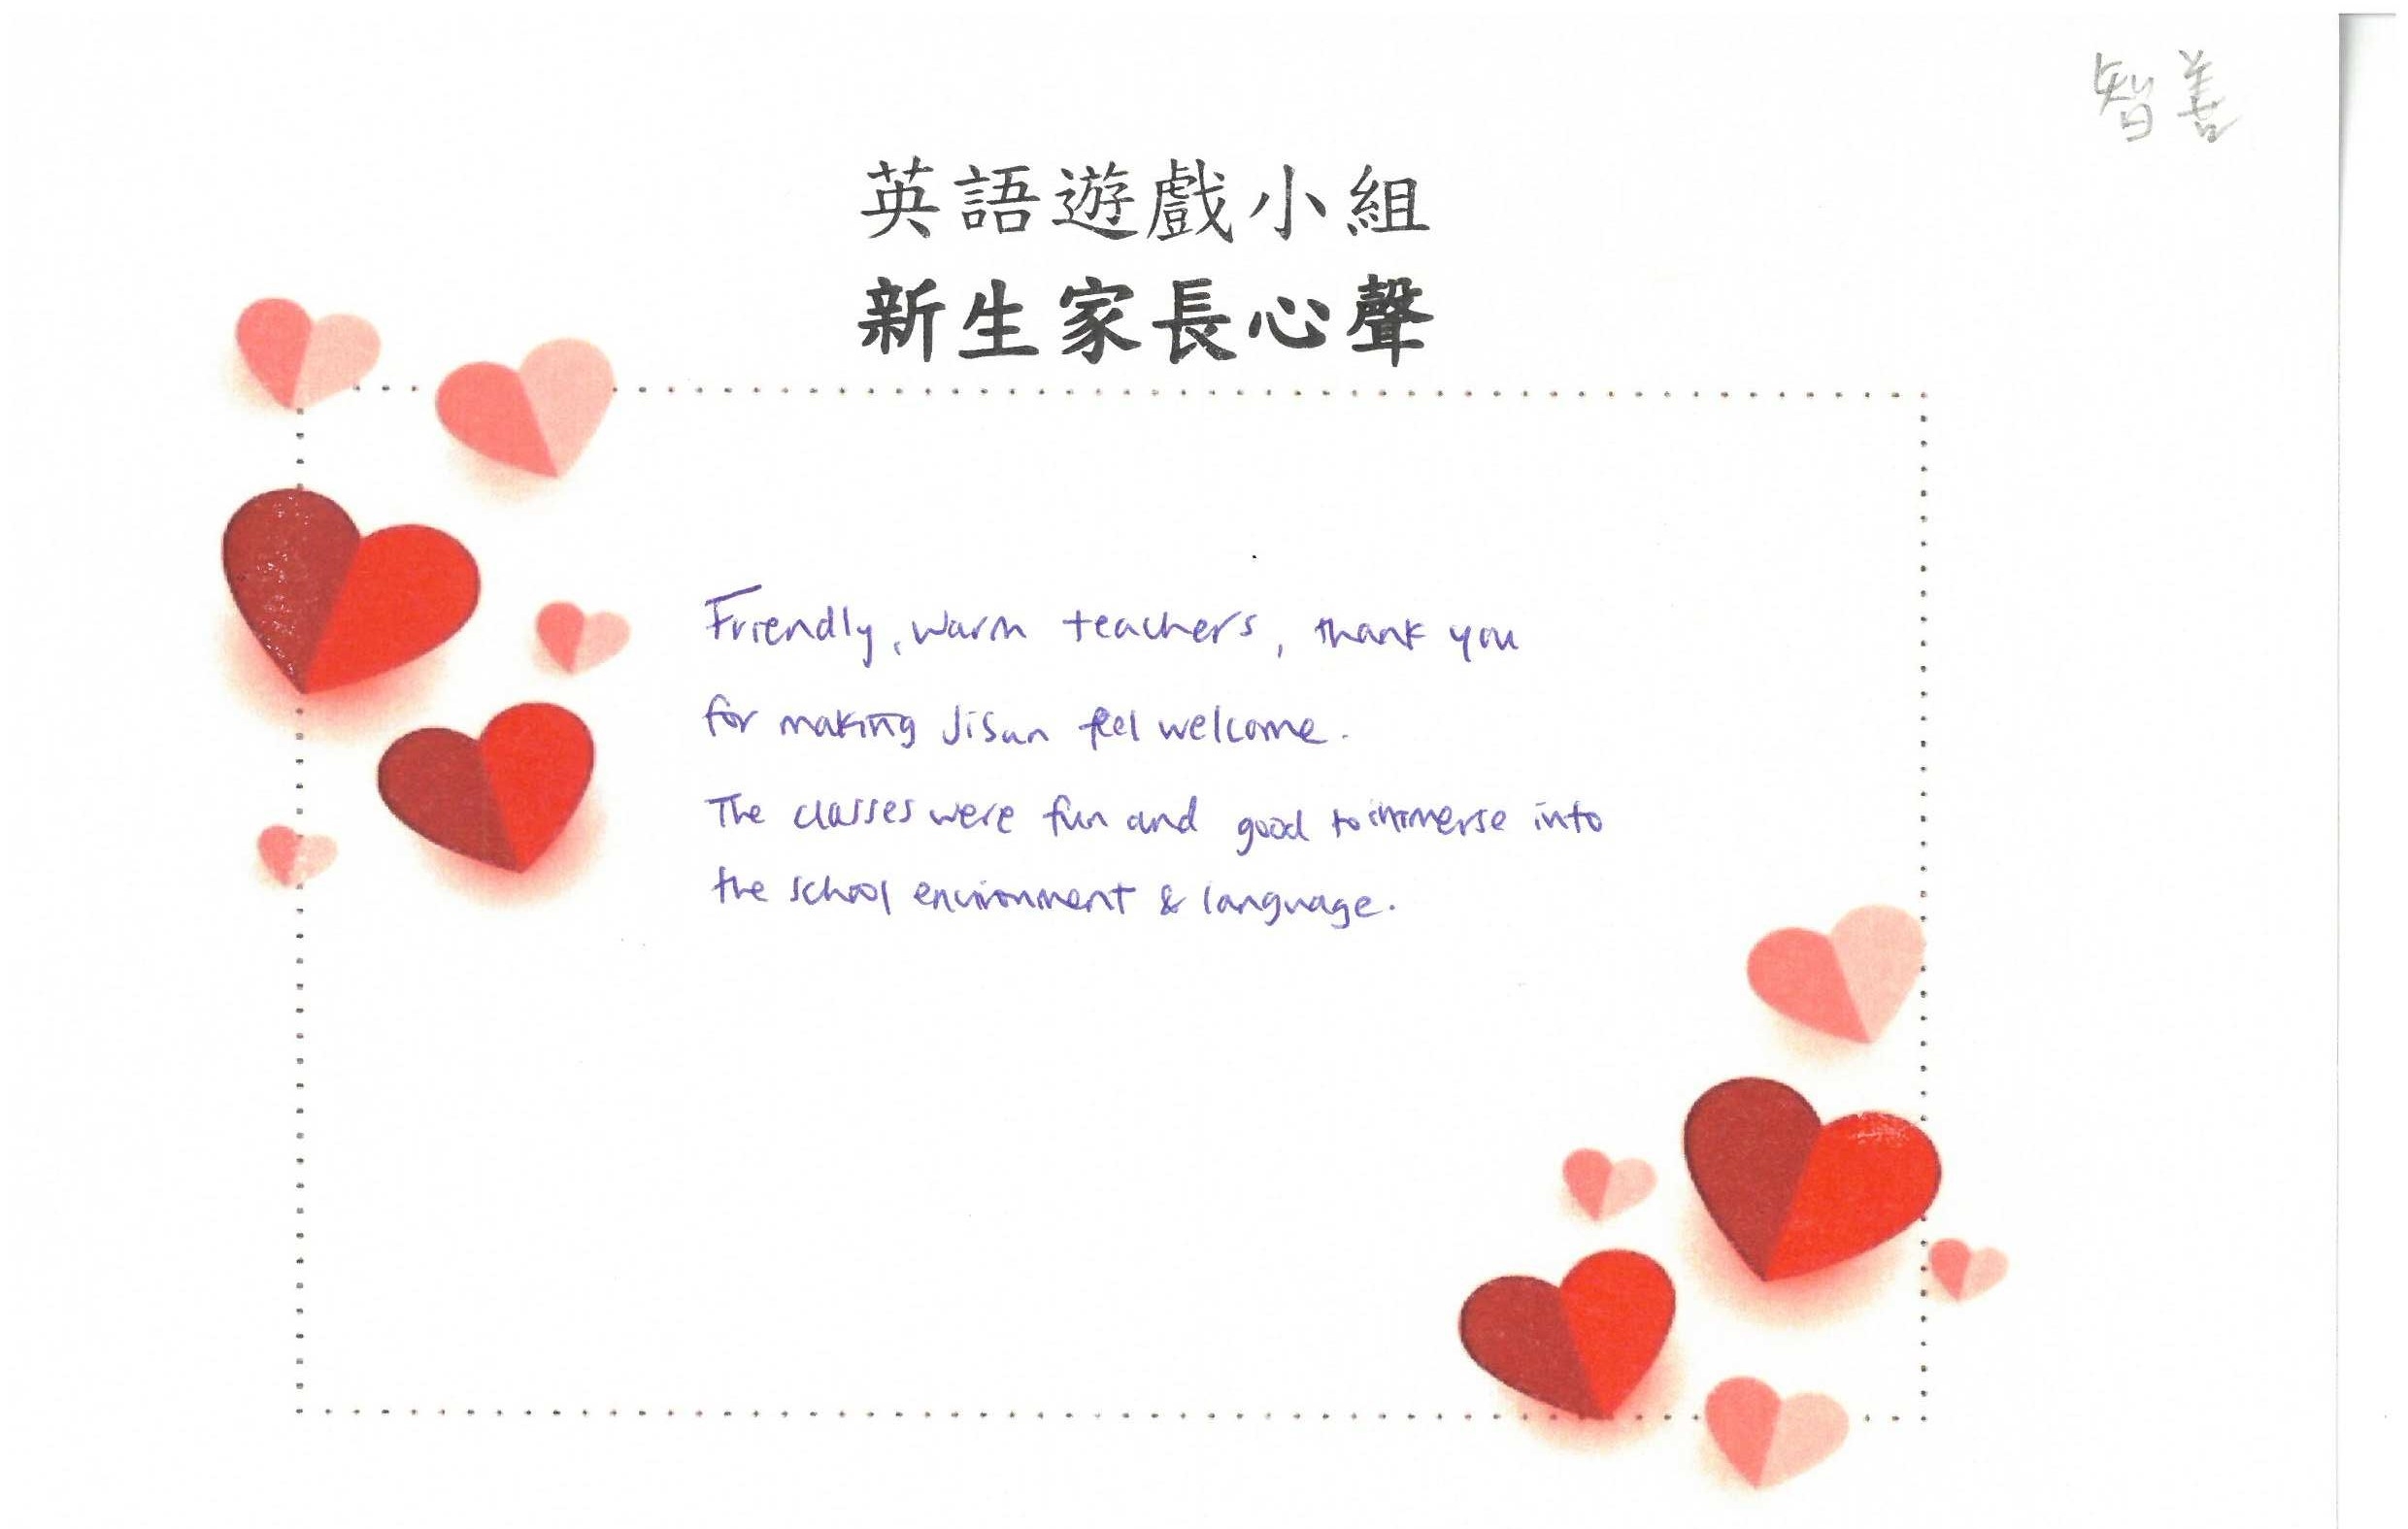 智善
英語遊戲小組
新生家長心聲
Friendly, warm teachers, thank you
for making Jisun feel welcome.
The classes were fun and good to immerse into
the school environment & language.